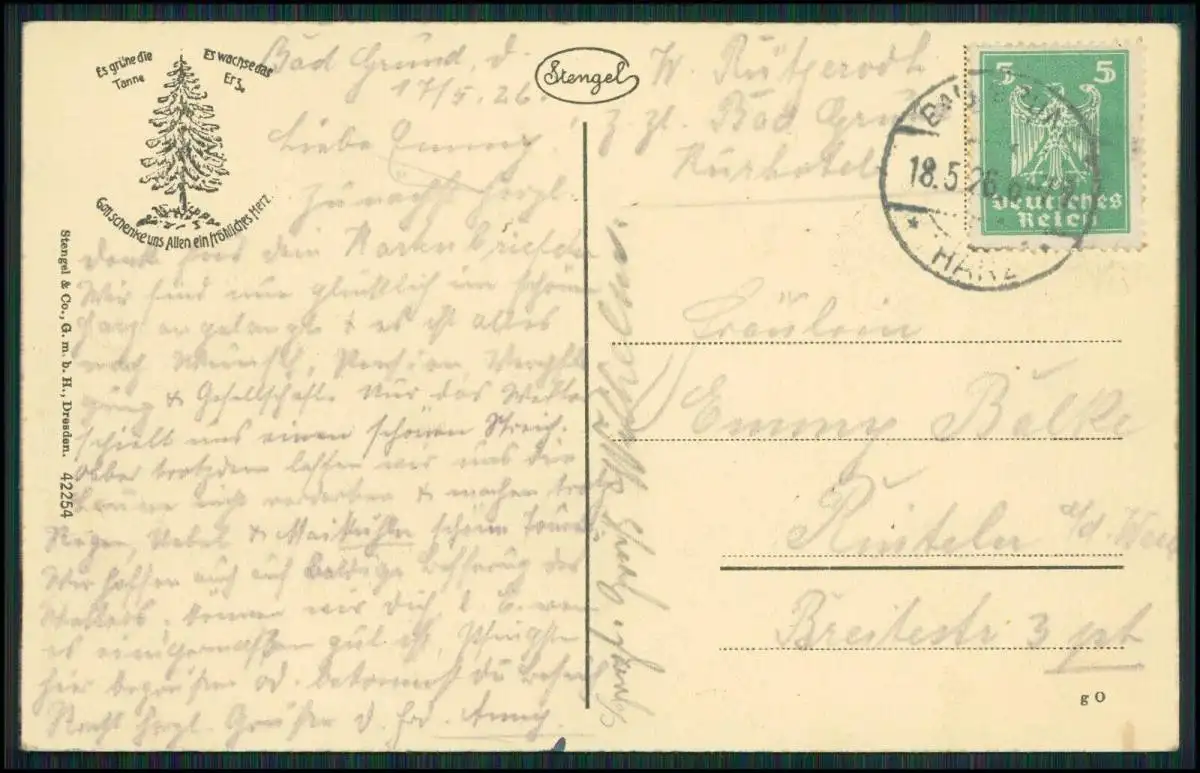 Es grüne die
Tanne
Es wachse das
Erz,
Gott schenke uns Allen ein fröhliches Herz.
Stengel
Stengel & Co., G. m. b. H., Dresden. 42254
Bad Grund, d.
17/5.26.
Liebe Emmy!
Zunächst herzl.
Dank für dein Kartenbriefchen
Wir sind nun glücklich im schönen
Harz angelangt & es ist alles
nach Wunsch, Pension, Verpfle
gung & Gesellschaft. Nur das Wetter
spielt uns einen schönen Streich.
Aber trotzdem lassen wir uns die
Laune nicht verderben & machen trotz
Regen, Nebel & Maikühle schöne Touren.
Wir hoffen auch auf baldige Besserung des
Wetters. Können wir Dich, l. E. wenn
es einigermaßen gut ist, Pfingsten
hier begrüßen od. bekommst du Besuch
Recht herzl. Grüße d. Anny.
W. Rütherodt
z. Zt. Bad Grund
Kurhotel
5 5
Deutsches
Reich
BAD GRUND
18.5.26
HARZ
Fräulein
Emmy Balke
Rinteln a/d Weser
Breitestr 3 pt
g O